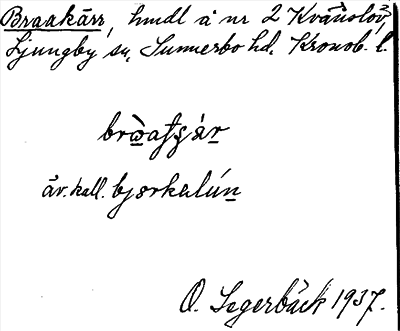 Braakärr, hmdl å nr 2 Kvänslöv,
Ljungby sn, Sunnerbo hd, Kronob. l.
äv. kall. bjorkalún
O. Segerbäck 1937.